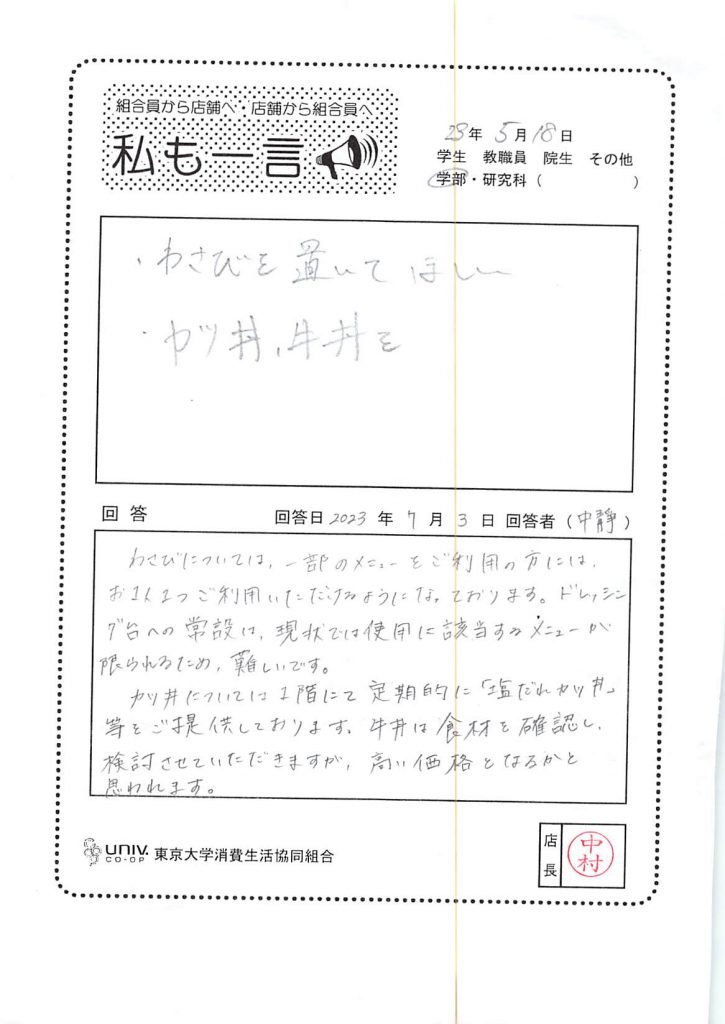 組合員から店舗へ・店舗から組合員へ
私も一言
23年 5月 18日
学生 教職員 院生 その他
学部・研究科( )
・わさびを置いてほしい
・カツ丼、牛丼を
回答 回答日 2023 年 7 月 3 日 回答者(中静)
わさびについては、一部のメニューをご利用の方には、
お1人1つご利用いただけるようになっております。ドレッシン
グ台への常設は、現状では使用に該当するメニューが
限られるため、難しいです。
カツ丼については1階にて定期的に「塩だれカツ丼」
等をご提供しております。牛丼は食材を確認し、
検討させていただきますが、高い価格となるかと
思われます。
UNIV. CO-OP 東京大学消費生活協同組合
店長 中村